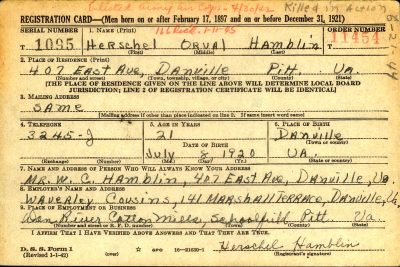 Killed in Action
REGISTRATION CARD—(Men born on or after February 17, 1897 and on or before December 31, 1921)
SERIAL NUMBER 1. NAME (Print) ORDER NUMBER
T 1095 Herschel Orval Hamblin 11454
(First) (Middle) (Last)
2. PLACE OF RESIDENCE (Print)
407 East Ave, Danville Pitt. Va.
(Number and street) (Town, township, village, or city) (County) (State)
[THE PLACE OF RESIDENCE GIVEN ON THE LINE ABOVE WILL DETERMINE LOCAL BOARD
JURISDICTION; LINE 2 OF REGISTRATION CERTIFICATE WILL BE IDENTICAL]
3. MAILING ADDRESS
Same
[Mailing address if other than place indicated on line 2. If same insert word same]
4. TELEPHONE 5. AGE IN YEARS 6. PLACE OF BIRTH
3245-J 21 Danville
DATE OF BIRTH (Town or county)
July 8 1920 VA.
(Exchange) (Number) (Mo.) (Day) (Yr.) (State or country)
7. NAME AND ADDRESS OF PERSON WHO WILL ALWAYS KNOW YOUR ADDRESS
Mr. W. C. Hamblin, 407 East Ave, Danville, Va.
8. EMPLOYER'S NAME AND ADDRESS
Waverley Cousins, 141 Marshall Terrace, Danville, Va.
9. PLACE OF EMPLOYMENT OR BUSINESS
Dan River Cotton Mills, Schoolfield Pitt Va.
(Number and street or R. F. D. number) (Town) (County) (State)
I AFFIRM THAT I HAVE VERIFIED ABOVE ANSWERS AND THAT THEY ARE TRUE.
D. S. S. Form 1
(Revised 1-1-42) (over) 16—21630-1 Herschel Hamblin
(Registrant's signature)